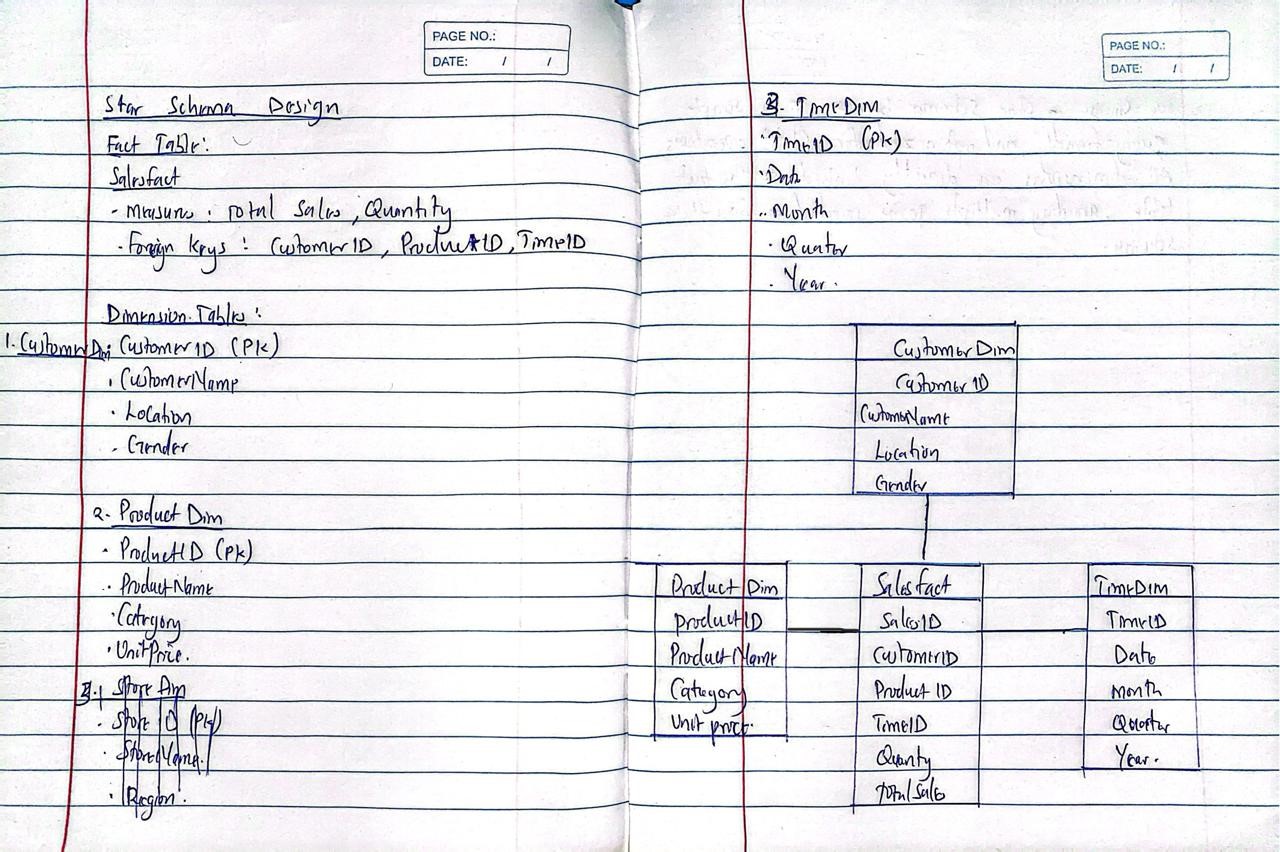 PAGE NO.:
DATE: / /
Star Schema Design
Fact Table:
Salesfact
- Measures: Total Sales, Quantity
- Foreign Keys: CustomerID, ProductID, TimeID
Dimension Tables:
1. CustomerDim
· CustomerID (PK)
· CustomerName
· Location
· Gender
2. Product Dim
· ProductID (PK)
· ProductName
· Category
· UnitPrice.
3. Store Dim
· Store ID (PK)
· Store Name.
· Region.
PAGE NO.:
DATE: / /
3. TimeDim
· TimeID (PK)
· Date
· Month
· Quater
· Year.
CustomerDim
CustomerID
CustomerName
Location
Gender
Product Dim
ProductID
Product Name
Category
Unit price.
Salesfact
SalesID
CustomerID
Product ID
TimeID
Quanty
Total Sales
TimeDim
TimeID
Date
Month
Quarter
Year.